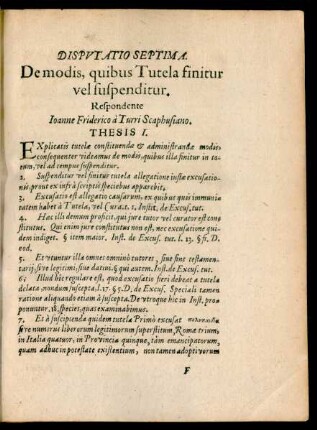 DISPVTATIO SEPTIMA.
De modis, quibus Tutela finitur
vel suspenditur.
Respondente
Ioanne Friderico à Turri Scaphusiano.
THESIS I.
EXplicatis tutelæ constituendæ & administrandæ modis,
consequenter videamus de modis, quibus illa finitur in to-
tum, vel ad tempus suspenditur.
2. Suspenditur vel finitur tutela allegatione iustæ excusatio-
nis, prout ex infrà scriptis speciebus apparebit.
3. Excusatio est allegatio causarum, ex quibus quis immuni-
natem habet à Tutela, vel Curâ. t. 2. Instit. de Excus. tut.
4. Hac illi demum proficit, qui jure tutor vel curator est cons
stitutus. Qui enim jure constitutus non est, nec excusatione qui-
dem indiget. § item maior. Inst. de Excus. tut. l. 13. § si, D.
eod.
5. Et vtuntur illa omnes omninò tutores, sive sint testamen-
tarij, sive legitimi, sive dativi. § qui autem. Inst. de Excus. tut.
6. Illud hîc regulare est, quod excusatio fieri debeat à tutela
delata nondum suscepta, l. 17. § 5. D. de Excus. Speciali tamen
ratione aliquando etiam à suscepta. De vtroque hîc in Inst. pro-
ponuntur, species, quas examinabimus.
7. Et à suscipienda quidem tutela Primò excusat
sive numerus liberorum legitimorum superstitum, Romæ trium,
in Italia quatuor, in Provincia quinque, tàm emancipatorum,
quàm adhuc in potestate existentium, non tamen adoptivorum
F